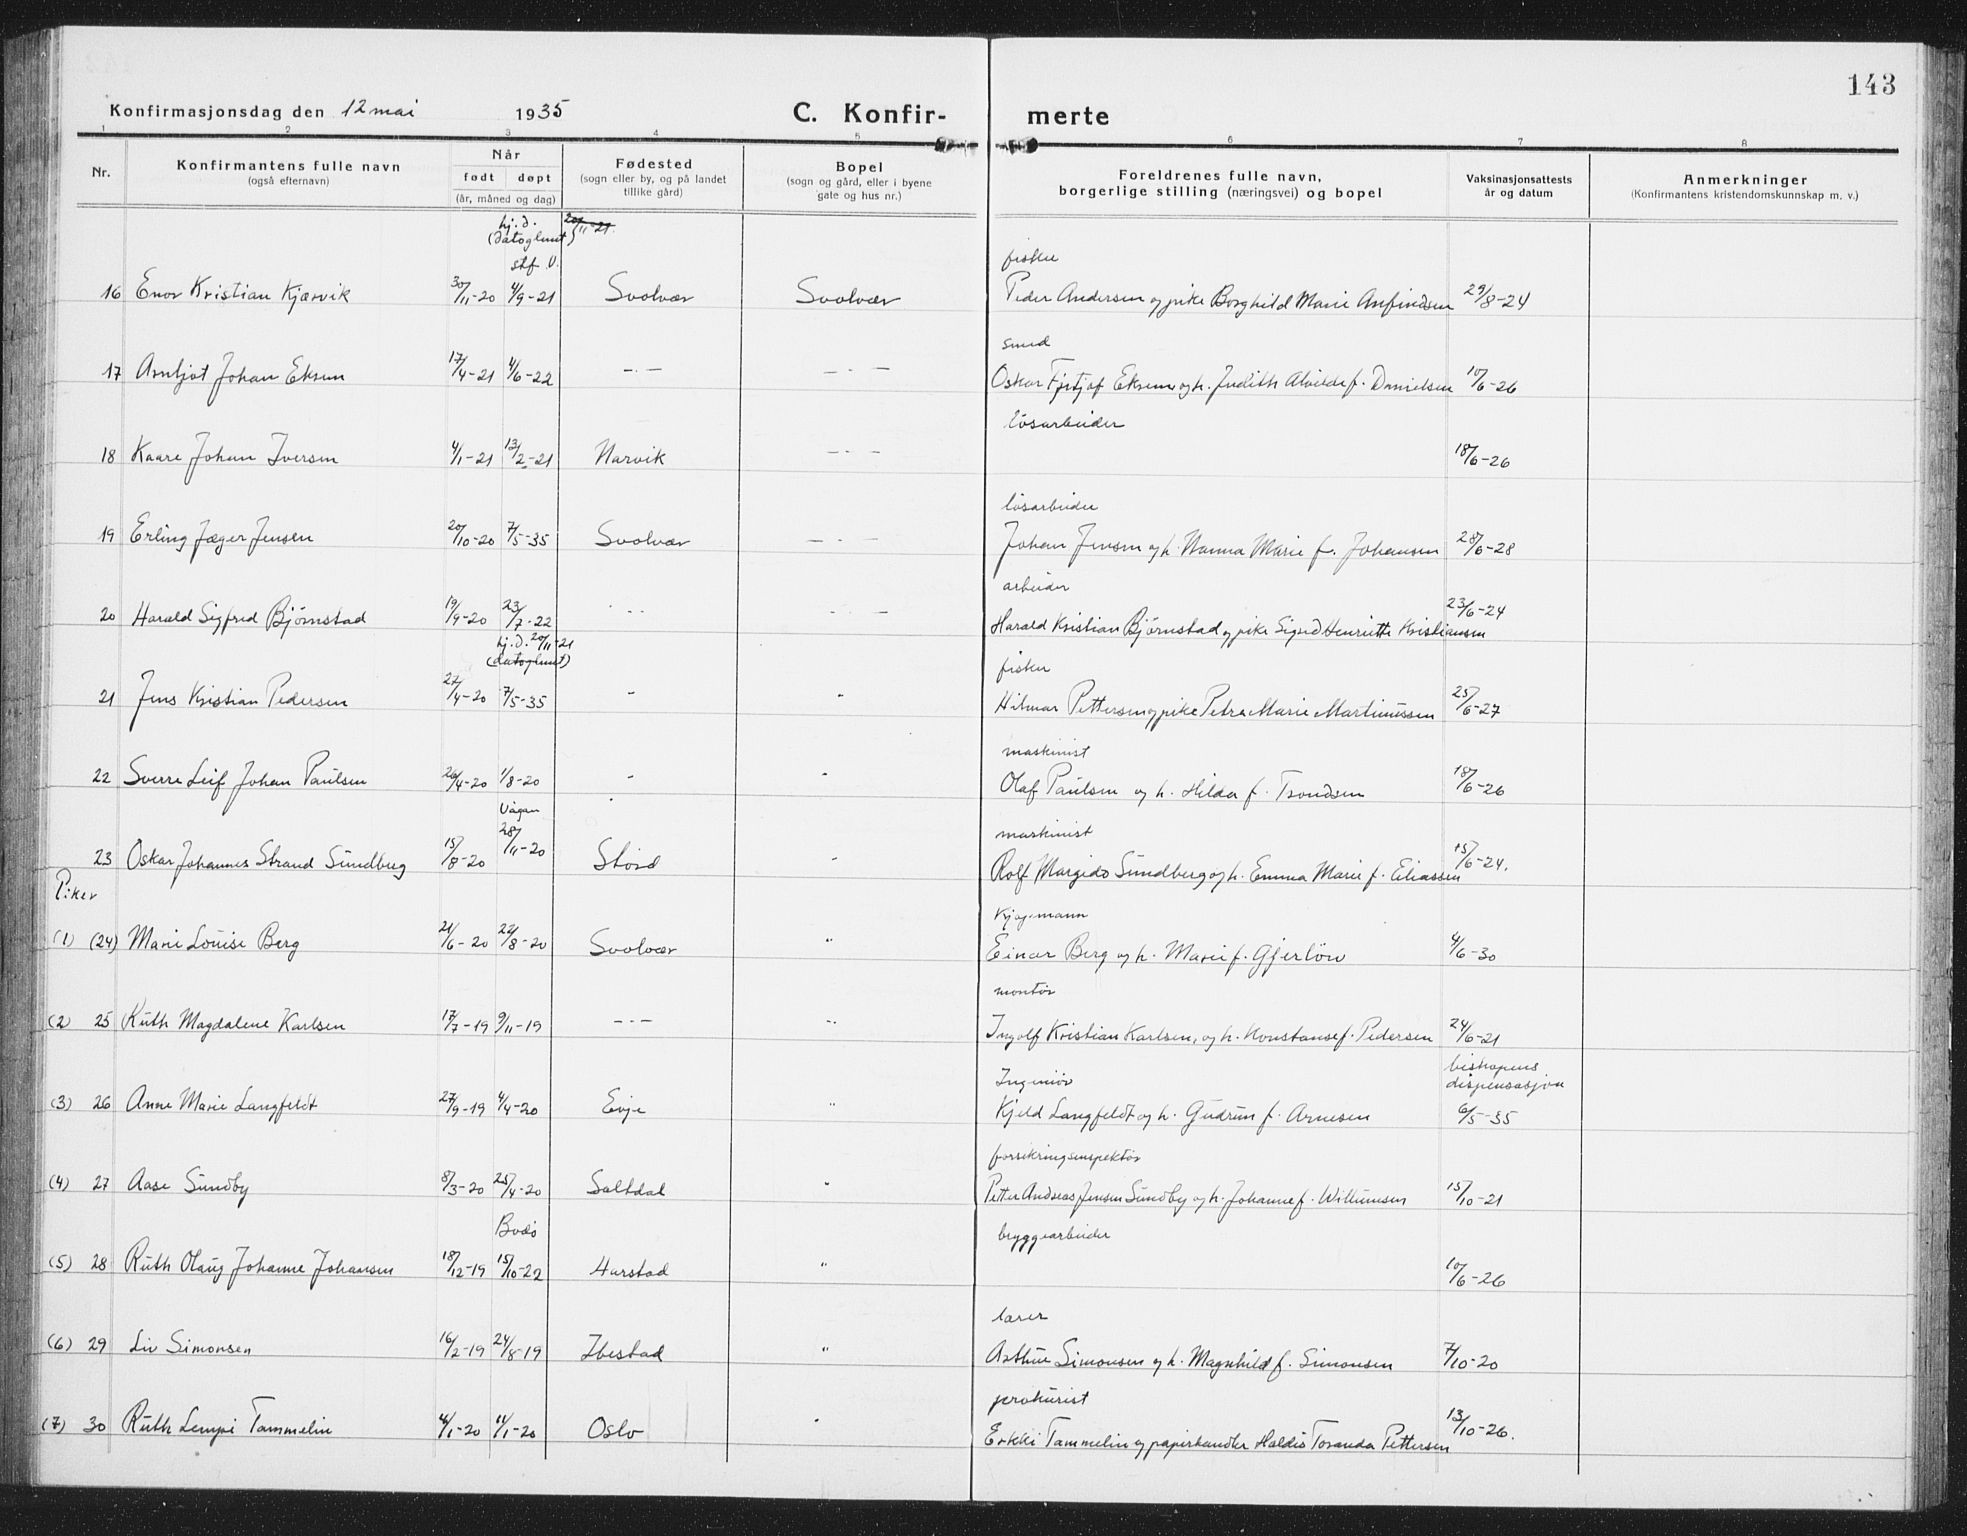 143
Konfirmasjonsdag den 12 mai 1935 C. Konfir- merte
1 2 3 4 5 6 7 8
Nr. Konfirmantens fulle navn (også efternavn) Når født døpt (år, måned og dag) Fødested (sogn eller by, og på landet tillike gård) Bopel (sogn og gård, eller i byene gate og hus nr.) Foreldrenes fulle navn, borgerlige stilling (næringsvei) og bopel Vaksinasjonsattests år og datum Anmerkninger (Konfirmantens kristendomskunnskap m. v.)
hj. d. 20/11-21.
(datoglemt)
stf. V. fisker
16 Enor Kristian Kjærvik 30/11-20 4/9-21 Svolvær Svolvær Peder Andersen og pike Borghild Marie Anfindsen 29/8-24
smed
17 Arnljot Johan Eksem 17/4-21 4/6-22 -"- -"- Oskar Fritjof Eksem og h. Judith Alvilde f. Danielsen 10/6-26
løsarbeider
18 Kaare Johan Iversen 4/1-21 13/2-21 Narvik -"- 18/6-26
løsarbeider
19 Erling Jæger Jensen 20/10-20 7/5-35 Svolvær -"- Johan Jensen og h. Nanna Marie f. Johansen 28/6-28
arbeider
20 Harald Sigfred Bjørnstad 19/9-20 23/7-22 -"- -"- Harald Kristian Bjørnstad og pike Sigrid Henriette Kristiansen 23/6-24
hj. d. 20/11-21
(datoglemt) fisker
21 Jens Kristian Pedersen 22/4-20 7/5-35 " " Hilmar Pettersen og pike Petra Marie Martinussen 25/6-27
maskinist
22 Sverre Leif Johan Paulsen 26/4-20 1/8-20 " " Olaf Paulsen og h. Hilda f. Trondsen 18/6-26
Vågan maskinist
23 Oskar Johannes Strand Sundberg 15/8-20 28/11-20 Stord " Rolf Margido Sundberg og h. Emma Marie f. Eliassen 15/6-24.
Piker
Kjøpmann
(1) (24) Marie Louise Berg 21/6-20 22/8-20 Svolvær " Einar Berg og h. Marie f. Gjerløw 4/6-30
montør
(2) 25 Ruth Magdalene Karlsen 17/7-19 9/11-19 -"- " Ingolf Kristian Karlsen, og h. Konstanse f. Pedersen 24/6-21
Ingeniør bishopens dispensasjon
(3) 26 Anne Marie Langfeldt 27/9-19 4/4-20 Evje " Kjeld Langfeldt og h. Gudrun f. Arnesen 6/5-35
forsikringsinspektør
(4) 27 Aase Sundby 8/3-20 25/4-20 Saltdal " Petter Andreas Jensen Sundby og h. Johanne f. Willumsen 15/10-21
Bodø bryggearbeider
(5) 28 Ruth Olaug Johanne Johansen 18/12-19 15/10-22 Harstad " 10/6-26
lærer
(6) 29 Liv Simonsen 16/2-19 24/8-19 Ibestad " Arthur Simonsen og h. Magnhild f. Simonsen 7/10-20
prokurist
(7) 30 Ruth Lempi Tammelin 4/1-20 11/1-20 Oslo " Erkki Tammelin og papirhandler Haldis Toranda Pettersen 13/10-26.